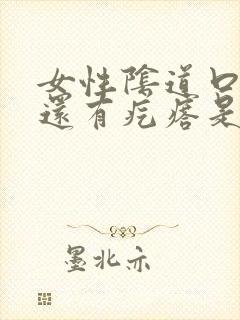 女性陰道口
還有疙瘩是
墨北亦